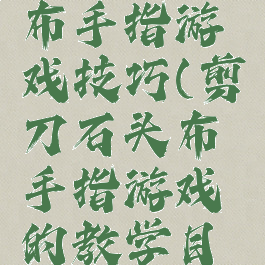 布手指游
戏技巧(剪
刀石头布
手指游戏
的教学目